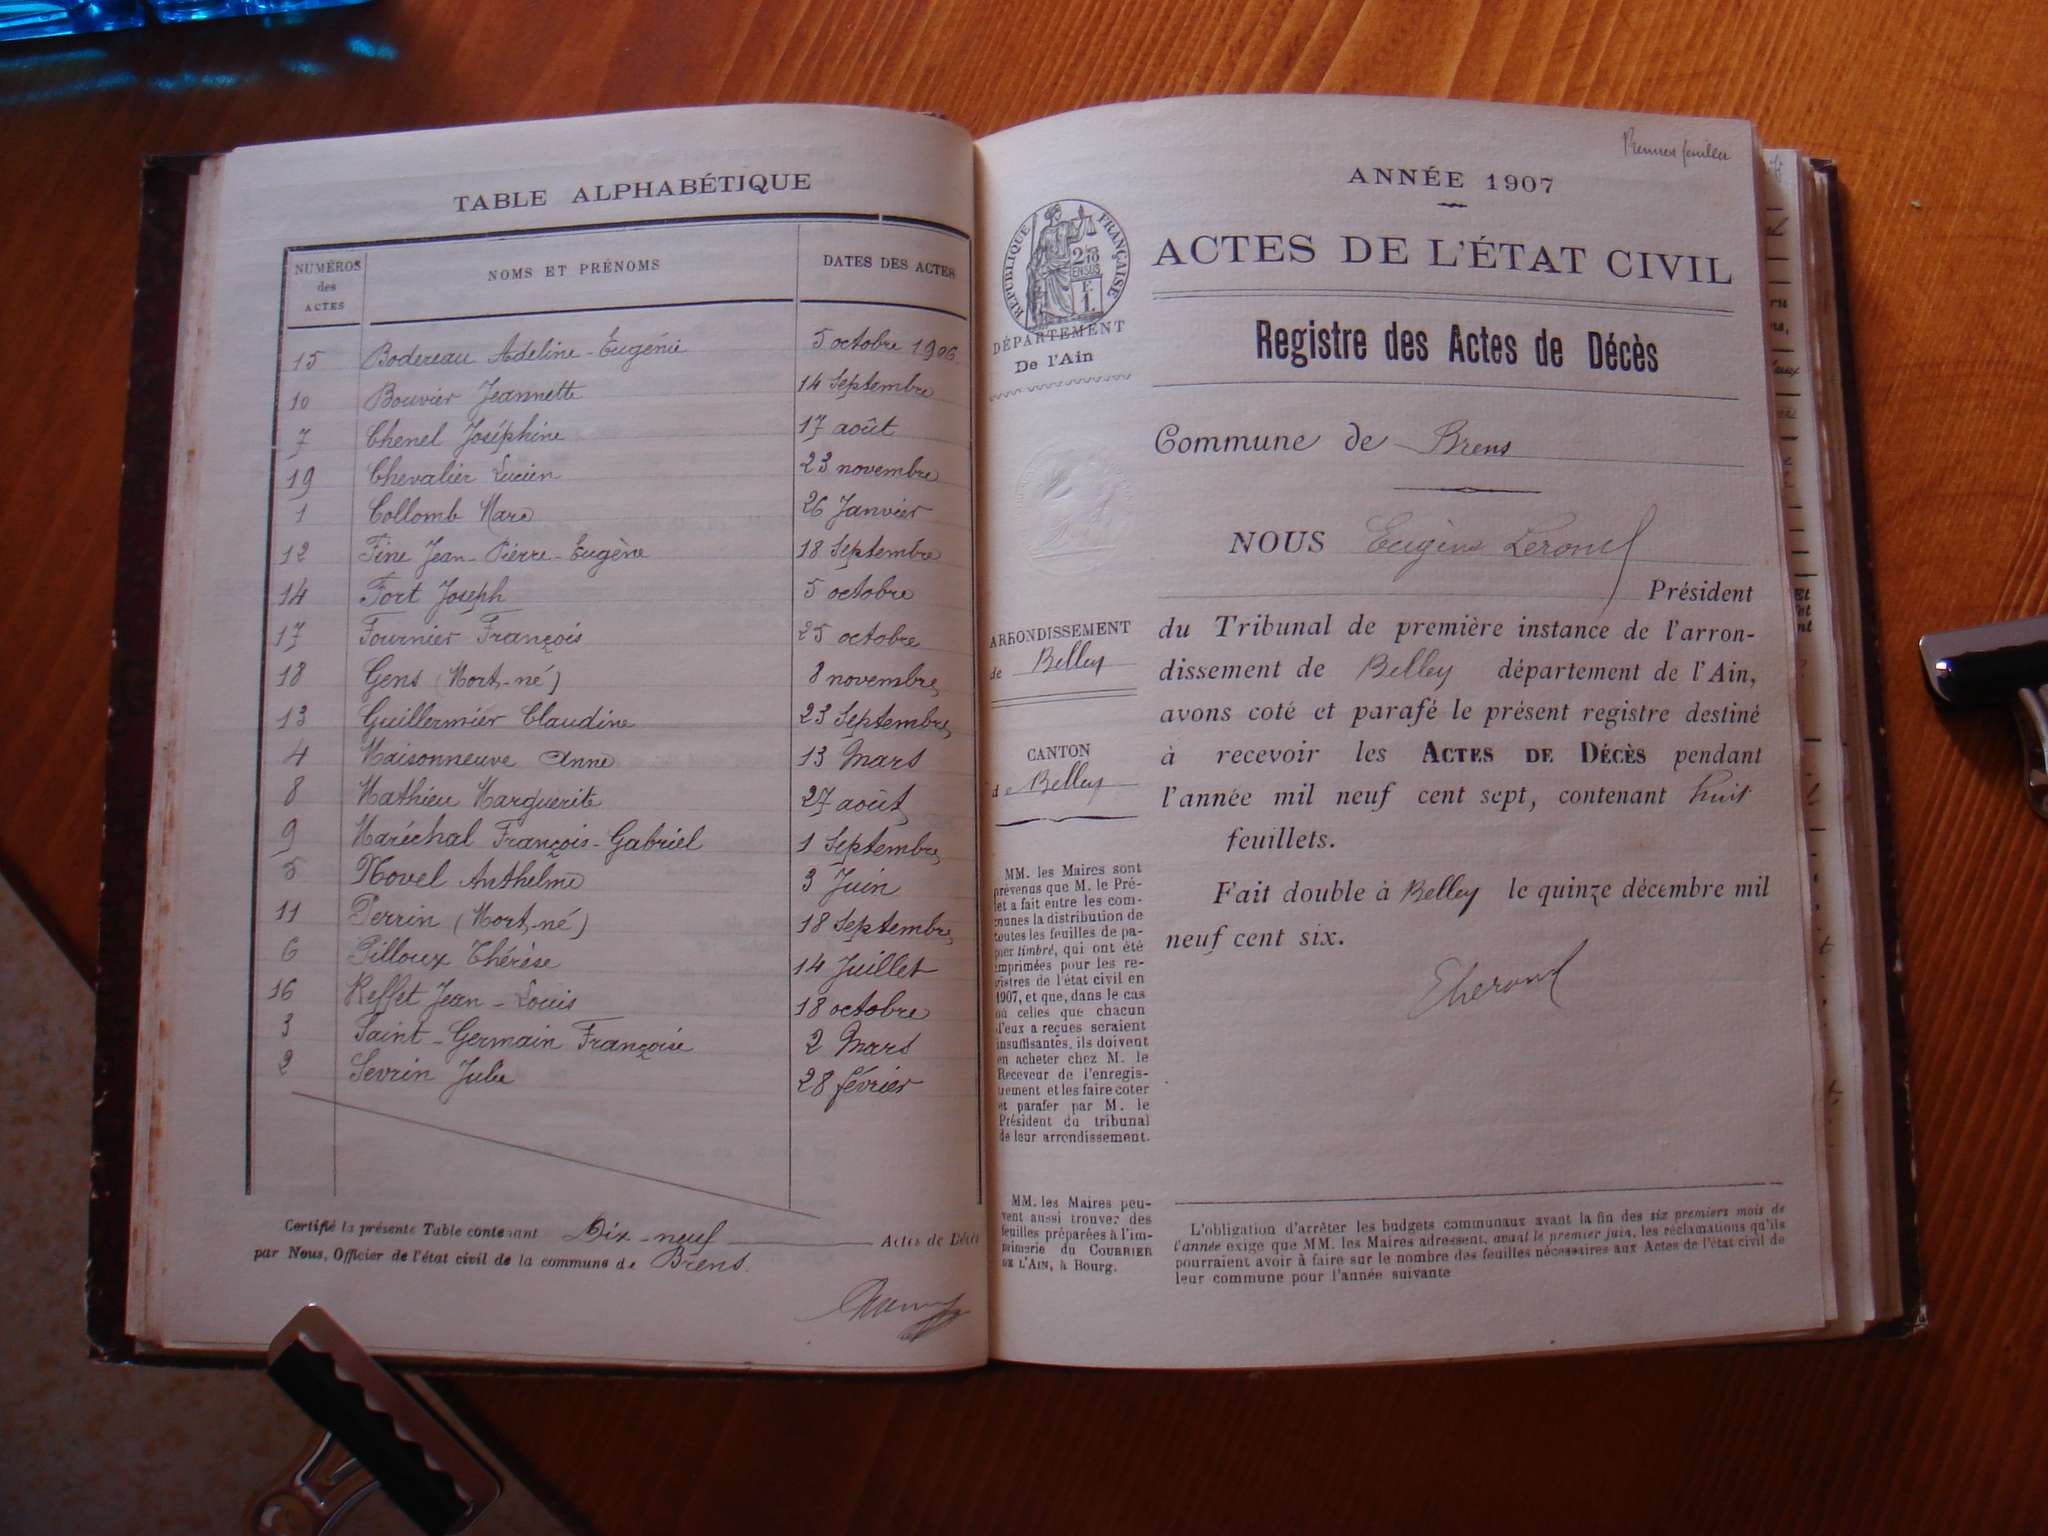 TABLE ALPHABÉTIQUE
NUMÉROS des ACTES NOMS ET PRÉNOMS DATES DES ACTES
15 Bodereau Adeline-Eugénie 5 octobre 1906.
10 Bouvier Jeannette 14 Septembre
7 Chenel Joséphine 17 août
19 Chevalier Lucien 23 novembre
1 Collomb Marc 26 Janvier
12 Fine Jean-Pierre-Eugène 18 Septembre
14 Fort Joseph 5 octobre
17 Fournier François 25 octobre
18 Gens (Mort-né) 8 novembre
13 Guillermier Claudine 23 Septembre
4 Maisonneuve Anne 13 Mars
8 Mathieu Marguerite 27 août
9 Maréchal François-Gabriel 1 Septembre
5 Novel Anthelme 3 Juin
11 Perrin (Mort-né) 18 Septembre
6 Pilloux Thérèse 14 Juillet
16 Reffet Jean-Louis 18 octobre
3 Saint-Germain Françoise 2 Mars
2 Sevrin Julie 28 février
Certifié la présente Table contenant Dix-neuf Actes de Décès
par Nous, Officier de l'état civil de la commune de Brens.
Premier feuillet
ANNÉE 1907
RÉPUBLIQUE FRANÇAISE
2/10 EN SUS
1 F.
ACTES DE L'ÉTAT CIVIL
DÉPARTEMENT
De l'Ain
Registre des Actes de Décès
Commune de Brens
NOUS Eugène
Président
du Tribunal de première instance de l'arron-
dissement de Belley département de l'Ain,
avons coté et parafé le présent registre destiné
à recevoir les ACTES DE DÉCÈS pendant
l'année mil neuf cent sept, contenant huit
feuillets.
Fait double à Belley le quinze décembre mil
neuf cent six.
ARRONDISSEMENT
de Belley
CANTON
de Belley
MM. les Maires sont
prévenus que M. le Pré-
fet a fait entre les com-
munes la distribution de
toutes les feuilles de pa-
pier timbré, qui ont été
imprimées pour les re-
gistres de l'état civil en
1907, et que, dans le cas
où celles que chacun
d'eux a reçues seraient
insuffisantes, ils doivent
en acheter chez M. le
Receveur de l'enregis-
trement et les faire coter
et parafer par M. le
Président du tribunal
de leur arrondissement.
MM. les Maires peu-
vent aussi trouver des
feuilles préparées à l'im-
primerie du COURRIER
DE L'AIN, à Bourg.
L'obligation d'arrêter les budgets communaux avant la fin des six premiers mois de
l'année exige que MM. les Maires adressent, avant le premier juin, les réclamations qu'ils
pourraient avoir à faire sur le nombre des feuilles nécessaires aux Actes de l'état civil de
leur commune pour l'année suivante